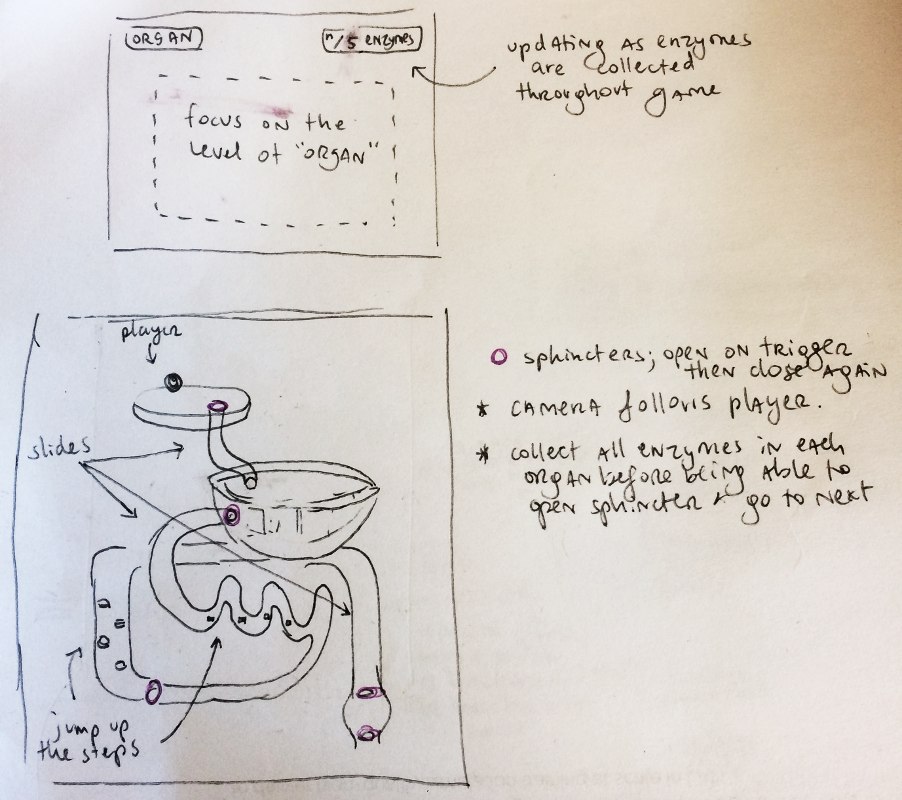 ORGAN
n/5 enzymes
focus on the
level of "ORGAN"
updating as enzymes
are collected
throughout game
player
slides
jump up
the steps
sphincters; open on trigger
then close again
* camera follows player.
* collect all enzymes in each
organ before being able to
open sphincter + go to next